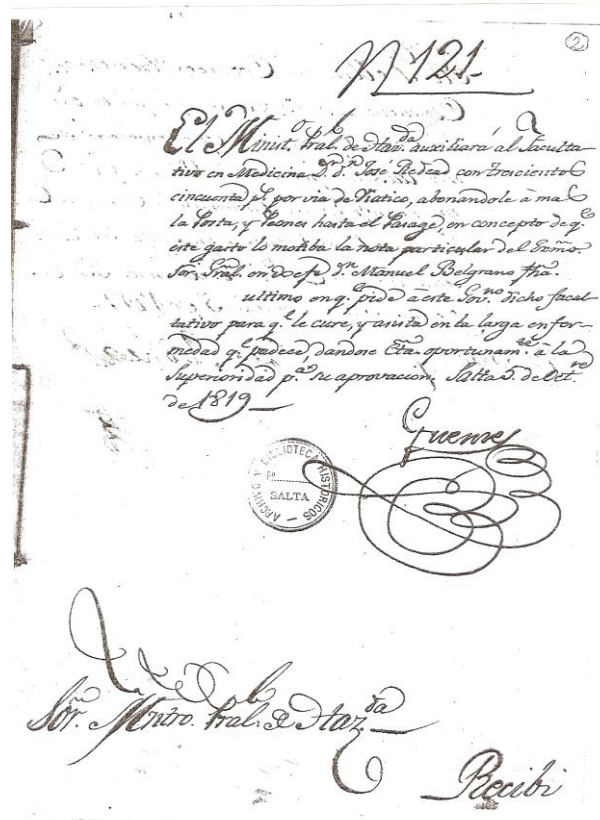 2
N 121.
El Minist.º Pral. de Haz.da auxiliará al Faculta-
tivo en Medicina D.r d.n José Redead con trescientos
cincuenta p.s por via de Viatico, abonandole à mas
la Posta, y Peones hasta el Pasage, en concepto de q.e
este gasto lo motiba la nota particular del Exmo.
Sor. Gral. en Xefe d.n Manuel Belgrano fha.
ultimo en q.e pide à este Gov.no dicho facul-
tativo para q.e le cure, y asista en la larga enfer-
medad q.e padece, dandose Cta. oportunam.te à la
Superioridad p.a su aprovacion. Salta 5. de Oct.re
de 1819
Guemes
ARCHIVO Y BIBLIOTECA HISTORICOS
Fº
SALTA
Sör. Mntro. Pral. de Haz.da
Recibi